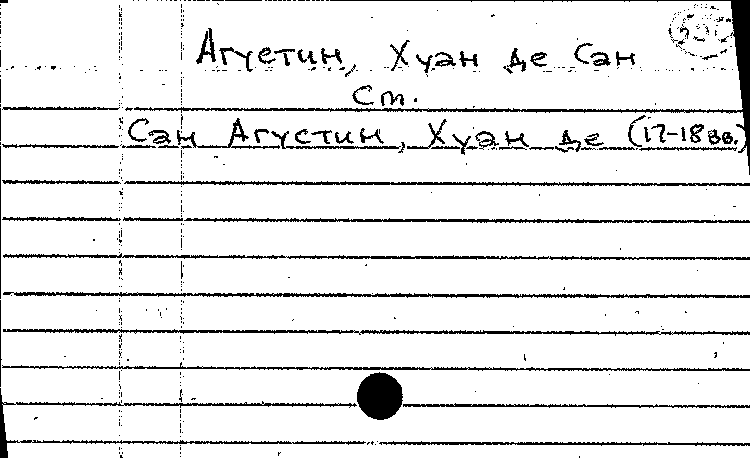 Агустин, Хуан де Сан
Ст.
Сан Агустин, Хуан де (17-18 вв.)